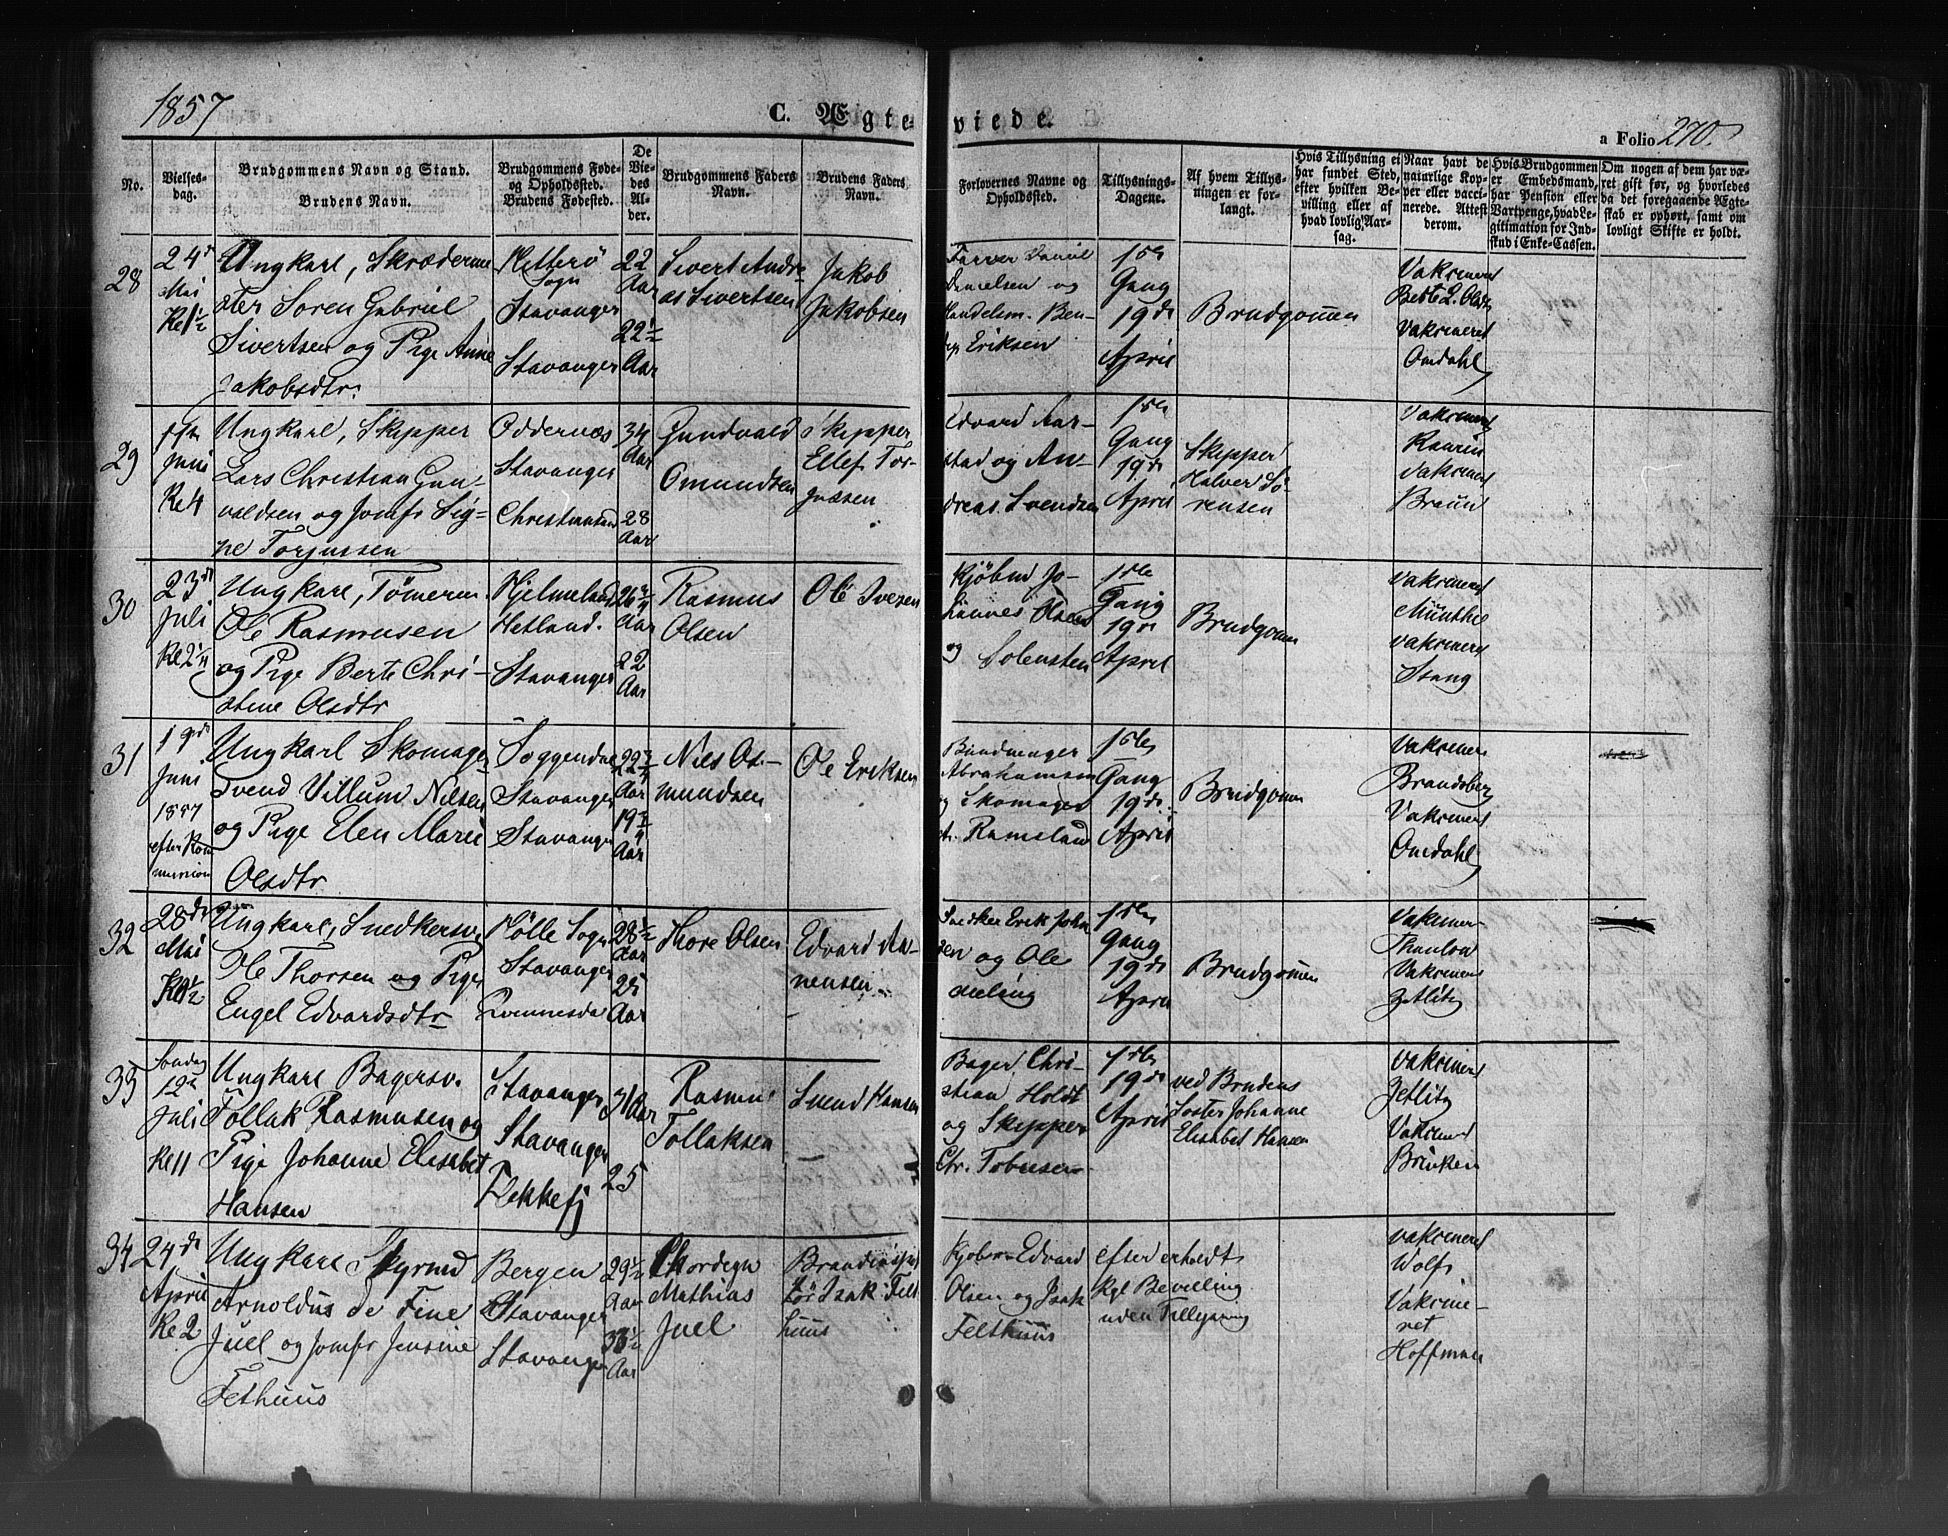 1857
C. Ægteviede.
a Folio 270.
No.
Vielses-
dag.
Brudgommens Navn og Stand.
Brudens Navn.
Brudgommens Føde-
og Opholdssted.
Brudens Fødested.
De
Vie-
des
Al-
der.
Brudgommens Faders
Navn.
Brudens Faders
Navn.
Forlovernes Navne og
Opholdssted.
Tillysnings-
Dagene.
Af hvem Tillys-
ningen er for-
langt.
Hvis Tillysning ei
har fundet Sted,
efter hvilken Be-
villing eller af
hvad lovlig Aar-
sag.
Naar havt de
naturlige Kop-
per eller vacci-
nerede. Attest
derom.
Hvis Brudgommen
er Embedsmand,
har Pension eller
Vartpenge, hvad Le-
gitimation for Ind-
skud i Enke-Cassen.
Om nogen af dem har væ-
ret gift før, og hvorledes
da det foregaaende Ægte-
skab er ophørt, samt om
lovligt Skifte er holdt.
28
24de
Mai
Kl 1½
Ungkarl, Skræderme
ster Søren Gabriel
Sivertsen og Pige Anne
Jakobsdtr.
Hitterö
Sogn
Stavanger
Stavanger
22
Aar
22½
Aar
Sivert Andre
as Sivertsen
Jakob
Jakobsen
Farver Daniel
Danielsen og
Handelsm. Ben-
Eriksen
1ste
Gang
19de
April
Brudgommen
Vakcineret
Omdahl
29
Juni
Kl 4
Ungkarl, Skipper
Lars Christian Gun-
valdsen og Jomfr Sig-
ne Torjussen
Oddernæs
Stavanger
Christiansand
34
Aar
28
Aar
Gundvald
Omundsen
Skipper
Ellef Tor-
jussen
Edvard Aar-
stad og An-
dreas Svendsen
1ste
Gang
19de
April
Skipper
Halver Sö-
rensen
Vakcineret
Kaurin
Vakcineret
Bruun
30
23de
Juli
Kl 2¼
Ungkarl, Tömmerm.
Ole Rasmusen
og Pige Berte Chri-
stine Olsdtr
Hjelmeland
Hetland.
Stavanger
26¾
Aar
22
Aar
Rasmus
Olsen
Ole Ivesen
Kjöbm Jo-
hannes Olsen
og Solensten
1ste
Gang
19de
April
Brudgomm
Vakcineret
Munthe
Vakcineret
Stang
31
19de
Juni
1857
efter Kom
munion
Ungkarl Skomager
Svend Villum Nilsen
og Pige Elen Marie
Olsdtr
Soggendal
Stavanger
Stavanger
22¾
Aar
19¾
Aar
Niels Os-
mundsen
Ole Eriksen
Bundmager
Abrahamsen
og Skomager
Ramsland
1ste
Gang
19de
April
Brudgomm
Vakciner
Brandsberg
Vakcineret
Omdahl
32
28de
Mai
Kl 1½
Ungkarl, Snedkersv.
Ole Thorsen og Pige
Engel Edvardsdtr
Hölle Sogn
Stavanger
Qvinnesdal
28½
Aar
25
Aar
Thore Olsen
Edvard Aa-
nensen
Snedker Erik Johan
sen og Ole
1ste
Gang
19de
April
Brudgommen
Vakciner
Thaulow
Vakcineret
Zetlitz
33
Söndag
12te
Juli
Kl 11
Ungkarl Bagersv.
Tollak Rasmusen og
Pige Johanne Elisabet
Hansen
Stavanger
Stavanger
Rekkefj
31 Aar
25
Rasmus
Tollaksen
Svend Hansen
Bager Chri-
stian Holdt
og Skipper
Chr. Tobiesen
1ste
19de
April
ved Brudens
Soster Johanne
Elisabet Hansen
Vakcineret
Zetlitz
Vakcineret
Brinken
34
24de
April
Kl 2
Ungkarl Styrmd
Arnoldus de Fine
Juel og Jomfr Jensine
Felthuus
Bergen
Stavanger
Stavanger
29½
Aar
33½
Aar
Mathias
Juel
Isak Felt
huus
Kjöbm Edvard
Olsen og Isak
Felthuus
efter erholdt
Kgl Bevilling
uden Tillysning
Vakcineret
Wolf
Vakcine-
ret
Hoffman